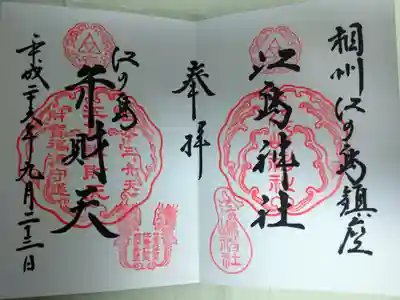 相州江の島鎮座
江島神社
奉拝
江の島
弁財天
平成二十六年九月二十三日